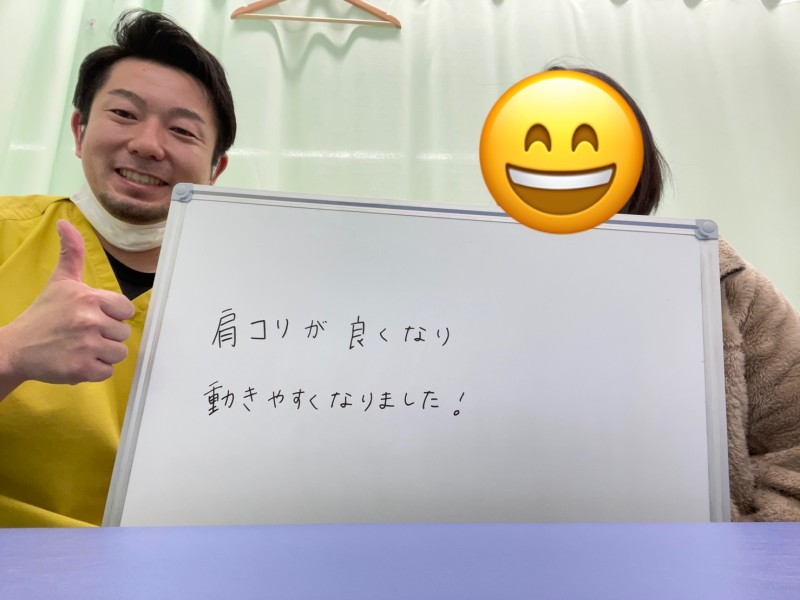 肩コリが良くなり
動きやすくなりました!